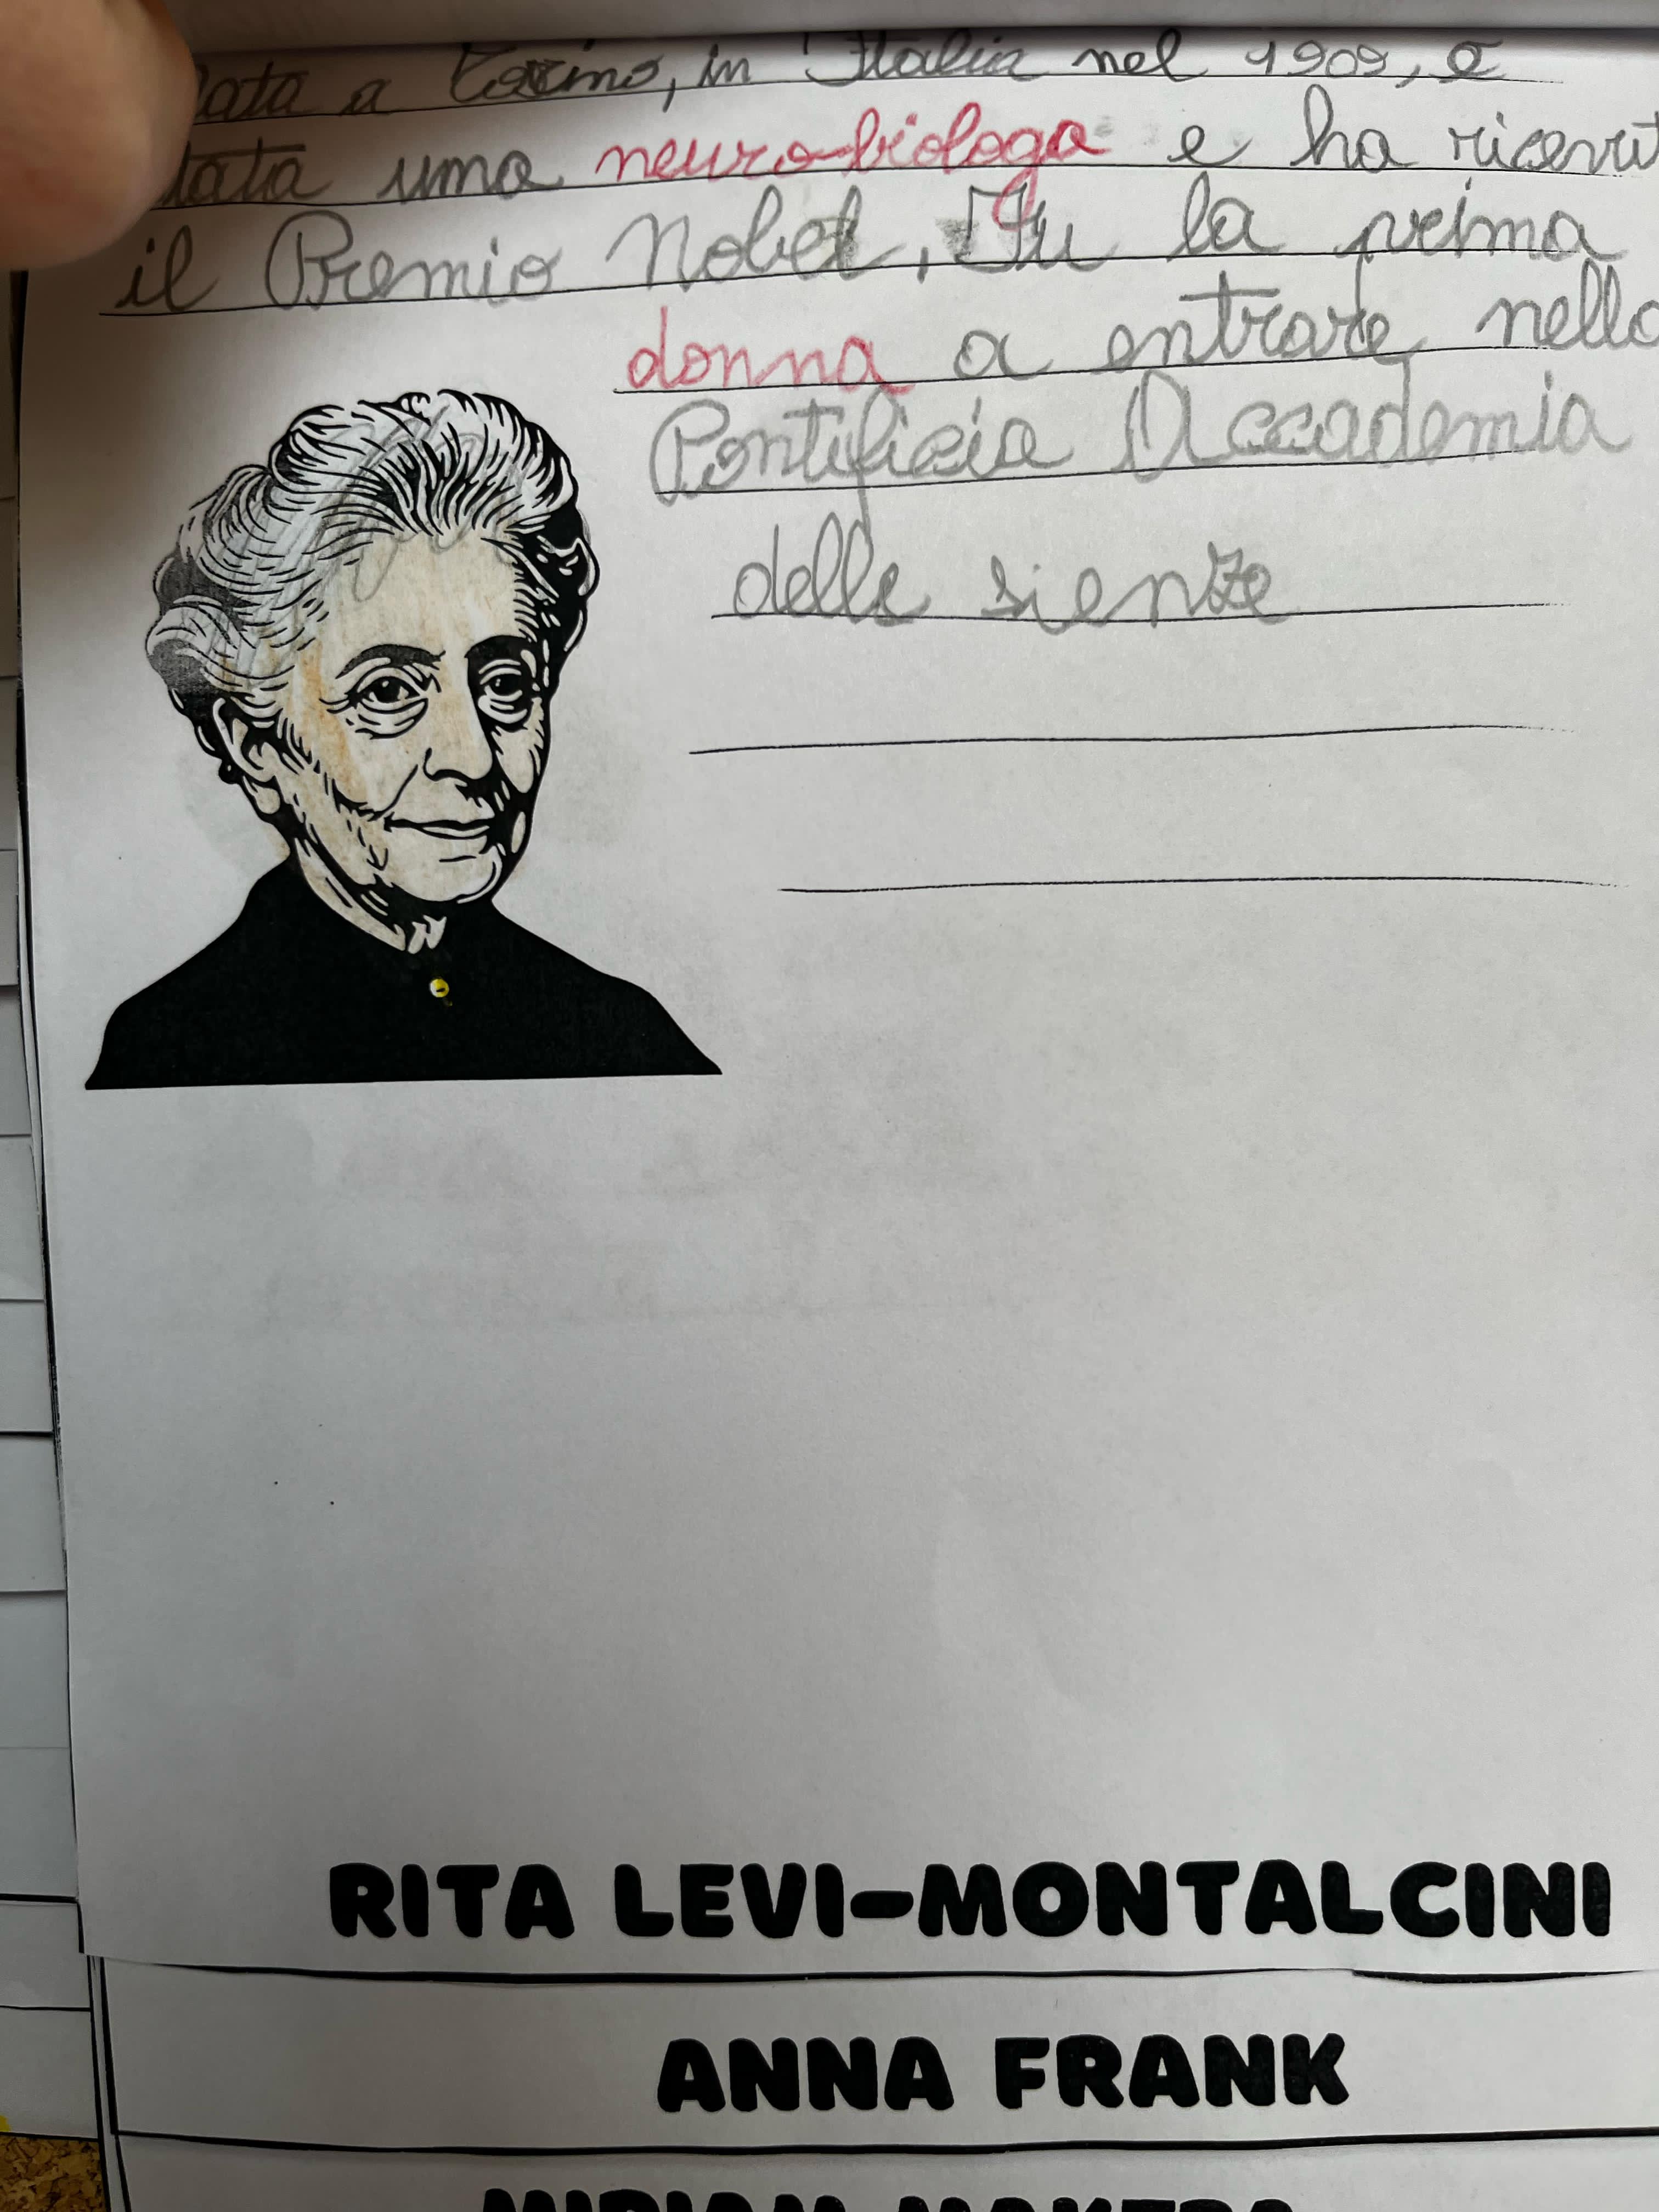 Nata a Torino, in Italia nel 1909, è
stata una neuro-biologa e ha ricevut
il Premio Nobel. Fu la prima
donna a entrare nella
Pontificia Accademia
delle sienze
RITA LEVI-MONTALCINI
ANNA FRANK
MIRIAM MAKEBA